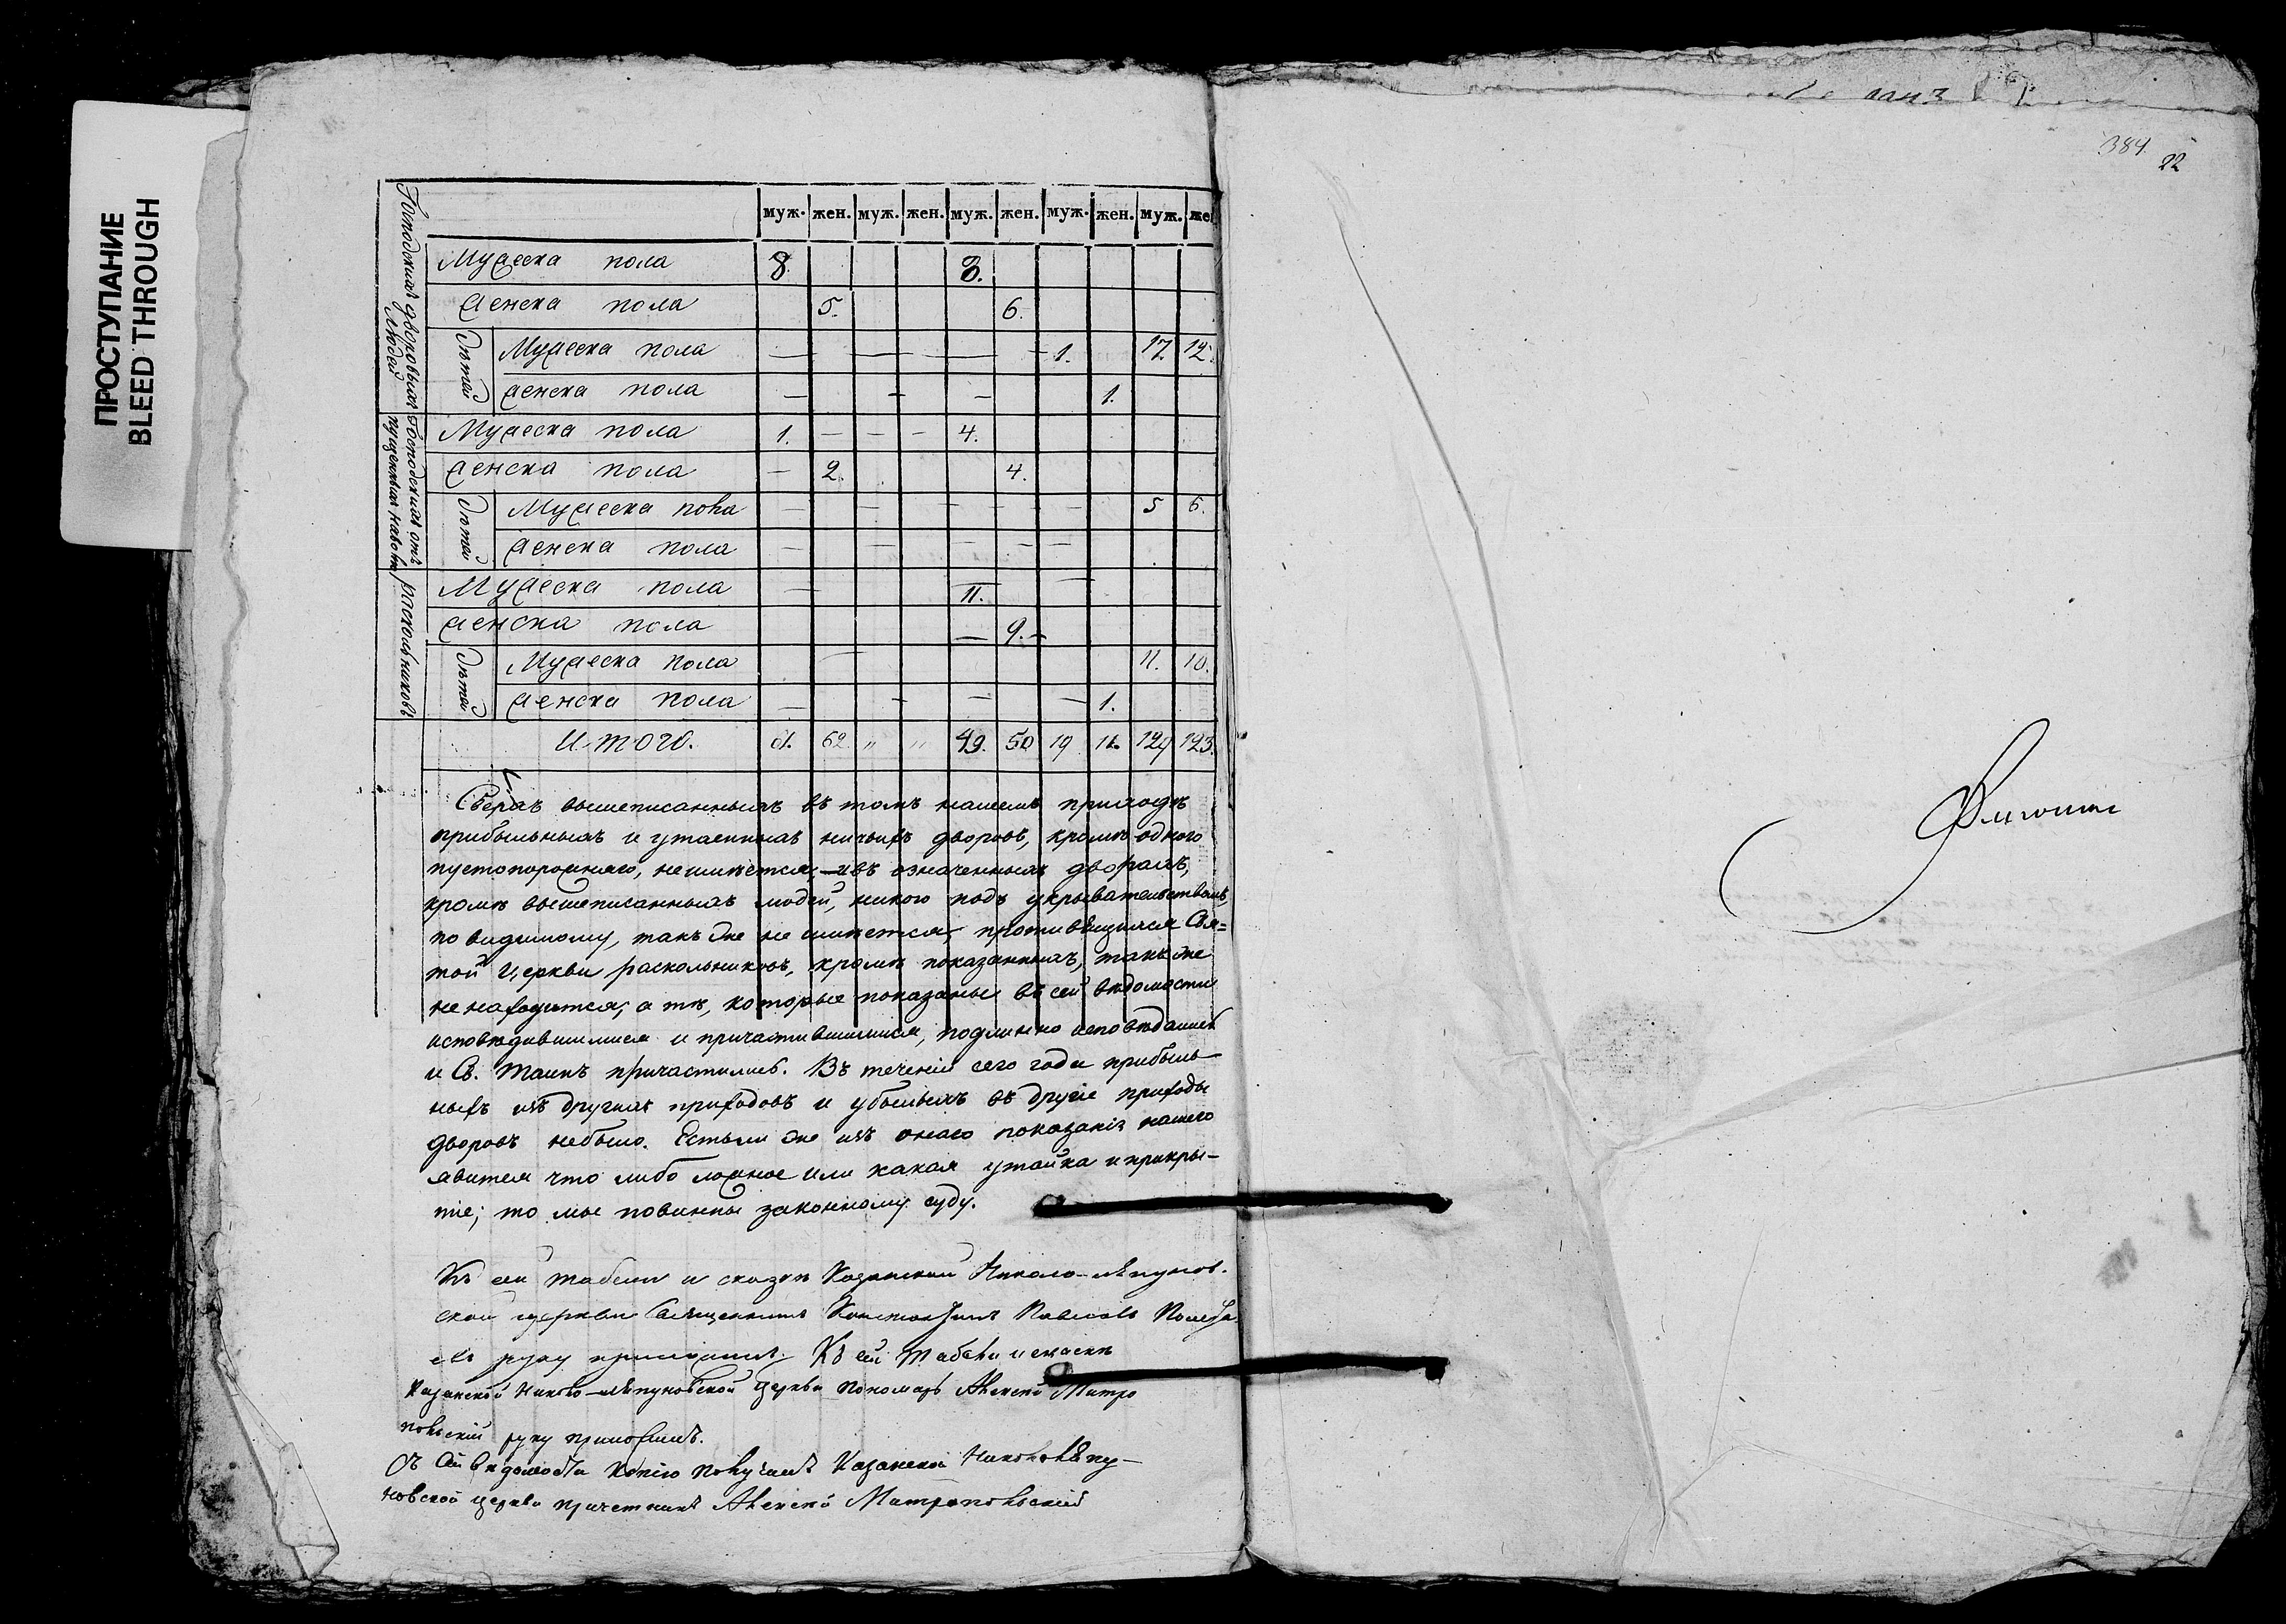 ПРОСТУПАНИЕ
BLEED THROUGH
384
22
муж. жен. муж. жен. муж. жен. муж. жен. муж. же
Господскихъ дворовыхъ людей
Мужеска пола 8. 8.
женска пола 5. 6.
дѣтей
Мужеска пола — — — — 1. 17. 12.
женска пола — — — 1.
Господскихъ отпущенныхъ на волю
Мужеска пола 1. — — — 4.
женска пола — 2. 4.
дѣтей
Мужеска пола — — — — — 5 6.
женска пола — — — — —
раскольниковъ
Мужеска пола — 11. —
женска пола — 9. —
дѣтей
Мужеска пола — 11. 10.
женска пола — — — — 1.
Итого. 62 " " 49. 50 19 124 123.
Сверхъ вышеписанныхъ въ томъ нашемъ приходѣ
прибыльныхъ и утаенныхъ ничьихъ дворовъ, кромѣ одного
пустопорожнего, не имѣется; — и въ означенныхъ дворахъ,
кромѣ вышеписанныхъ людей, никого подъ укрывательствомъ,
по видимому, такъ же не имѣется, противящихся Свя=
той Церкви раскольниковъ, кромѣ показанныхъ, такъ же
не находится; а тѣ, которые показаны въ сей вѣдомости
исповѣдавшимися и причастившимися, подлинно исповѣдались
и Св. Таинъ причастились. Въ теченіи сего года прибыль-
ныхъ изъ другихъ приходовъ и убылыхъ въ другіе приходы
дворовъ небыло. Естьли же изъ онаго показанія нашего
явится что либо ложное или какая утайка и прикры-
тіе; то мы повинны законному суду.
Къ сей табели и сказкѣ Казанской Николо-
ской церкви Священникъ Константинъ Павловъ
въ руку приложилъ. Къ сей табели и сказкѣ
Казанской Николо- церкви пономарь Алексѣй Митро
польскій руку приложилъ.
Съ сей вѣдомости копію получилъ Казанской
новской церкви причетникъ Алексѣй Митропольскій